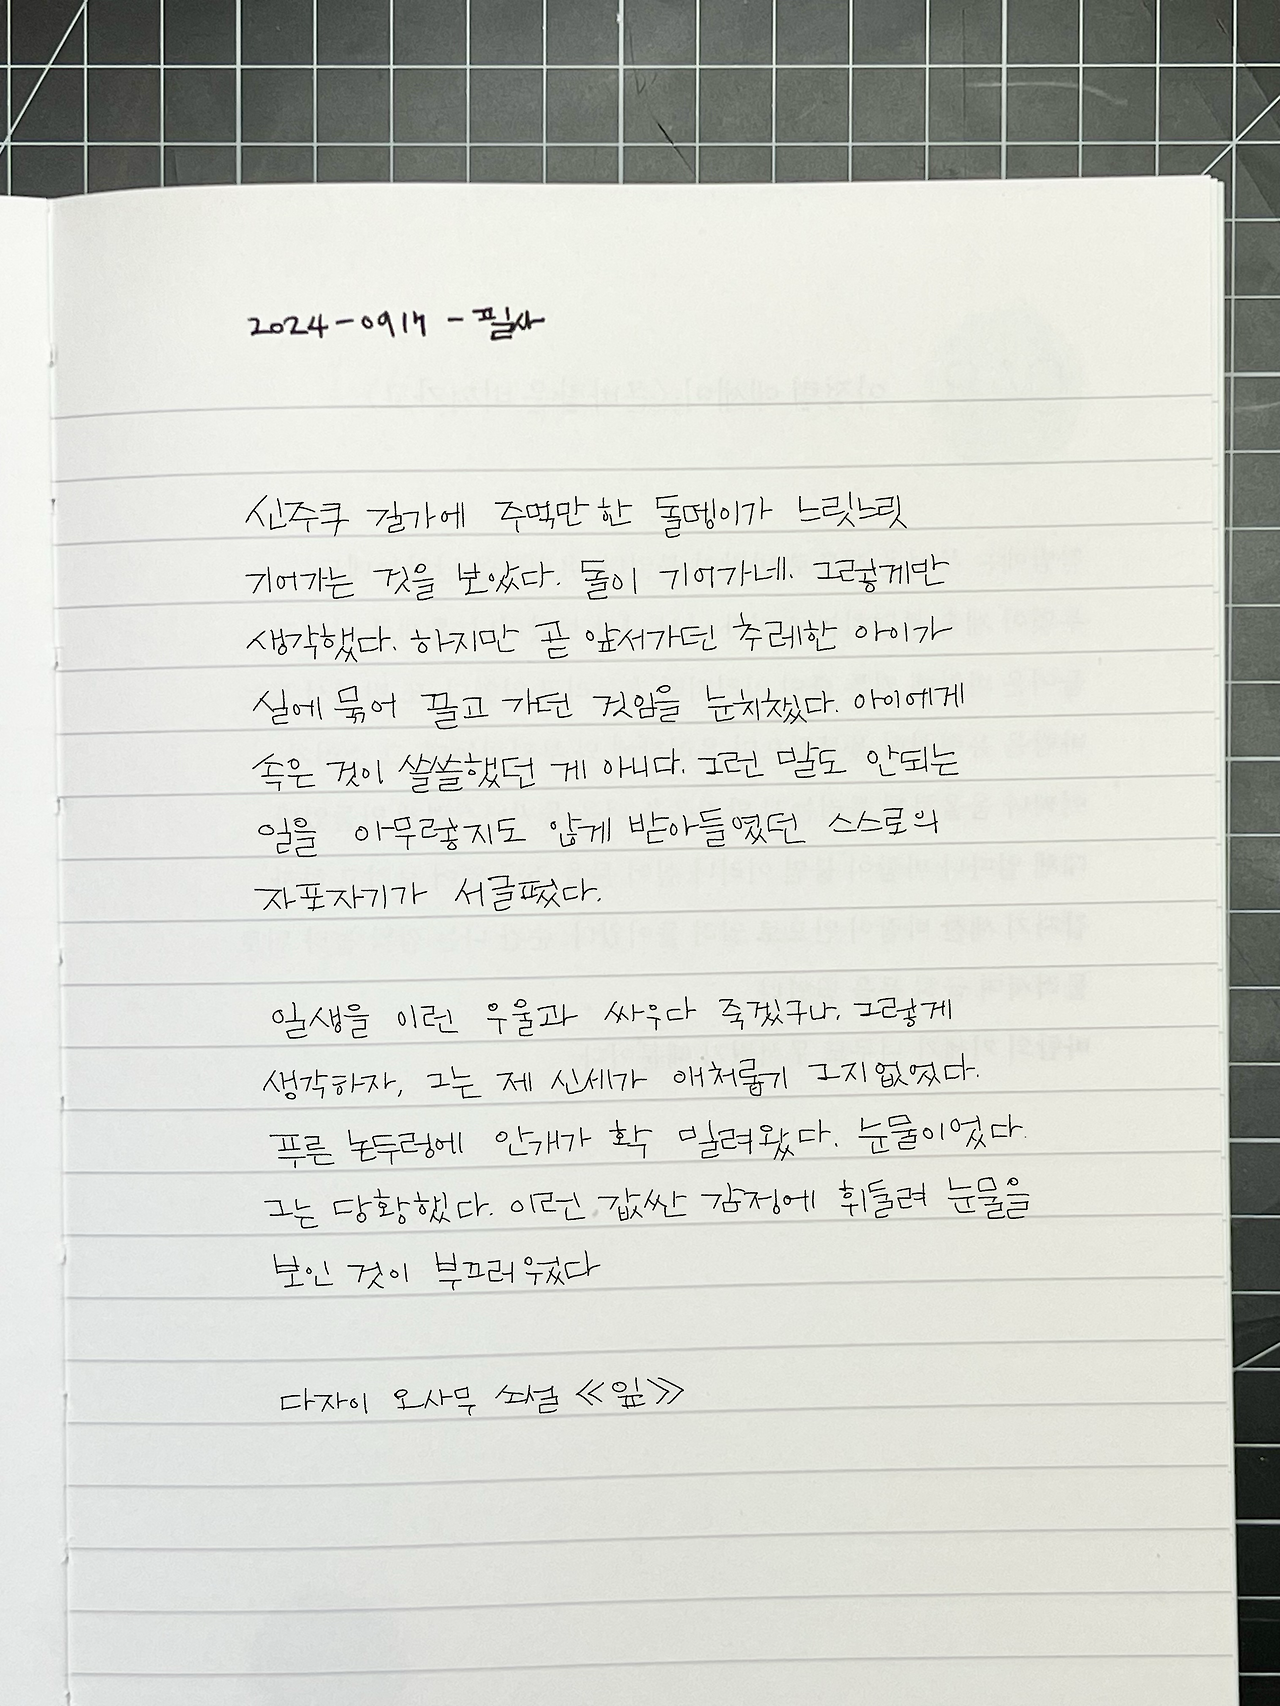 2024-0917-필사
신주쿠 길가에 주먹만 한 돌멩이가 느릿느릿
기어가는 것을 보았다. 돌이 기어가네. 그렇게만
생각했다. 하지만 곧 앞서가던 추레한 아이가
실에 묶어 끌고 가던 것임을 눈치챘다. 아이에게
속은 것이 쓸쓸했던 게 아니다. 그런 말도 안되는
일을 아무렇지도 않게 받아들였던 스스로의
자포자기가 서글펐다.
일생을 이런 우울과 싸우다 죽겠구나. 그렇게
생각하자, 그는 제 신세가 애처롭기 그지없었다.
푸른 논두렁에 안개가 확 밀려왔다. 눈물이었다.
그는 당황했다. 이런 값싼 감정에 휘둘려 눈물을
보인 것이 부끄러웠다
다자이 오사무 소설 《잎》